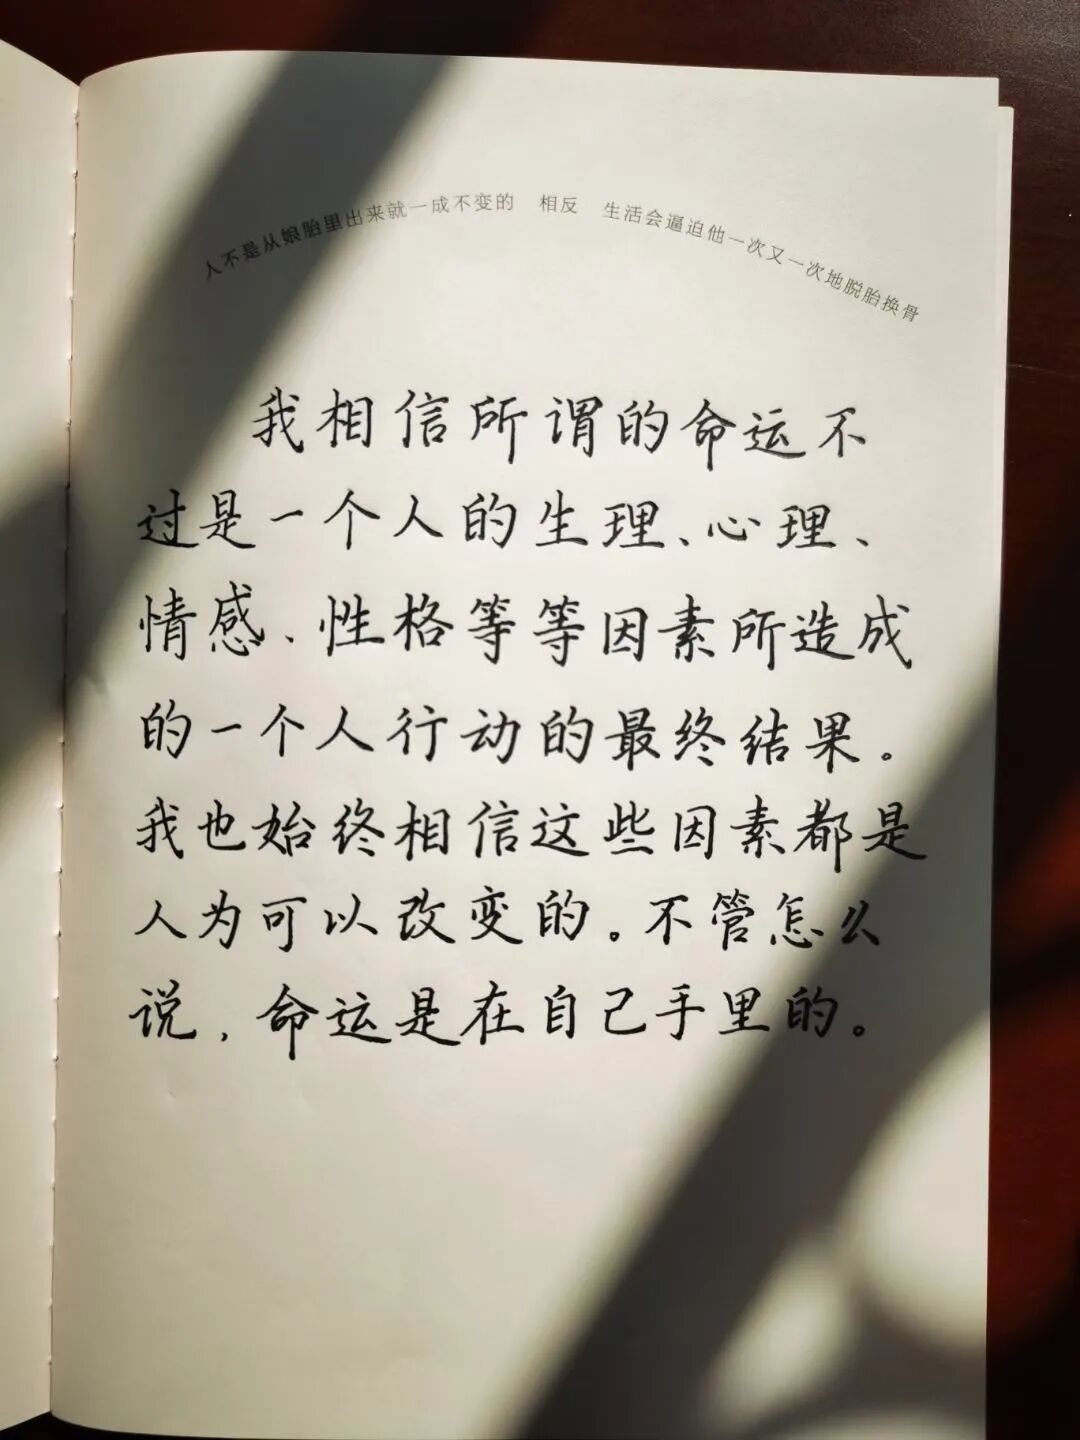 人不是从娘胎里出来就一成不变的 相反 生活会逼迫他一次又一次地脱胎换骨
我相信所谓的命运不
过是一个人的生理、心理、
情感、性格等等因素所造成
的一个人行动的最终结果。
我也始终相信这些因素都是
人为可以改变的。不管怎么
说,命运是在自己手里的。